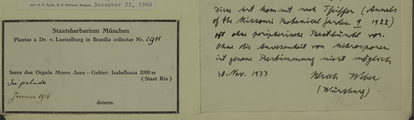 Det. H. P. Fuchs, U. S. National Museum December 22, 1960
Staatsherbarium München
Plantae a Dr. v. Luetzelburg in Brasilia collectae Nr. 2911
Serra dos Orgaõs Morro Assu - Gebiet: Isabellouca 2000 m
(Staat Rio)
In palude
Januar 1916
determ.
Diese Art kommt nach Pfeiffer (Annals
of the Missouri Botanical Garden 9 1922)
oft ohne peripherische Bastbündel vor.
Ohne die Anwesenheit von Mikrosporen
ist genaue Bestimmung nicht möglich.
30. Nov. 1933
Ulrich Weber
(Würzburg)